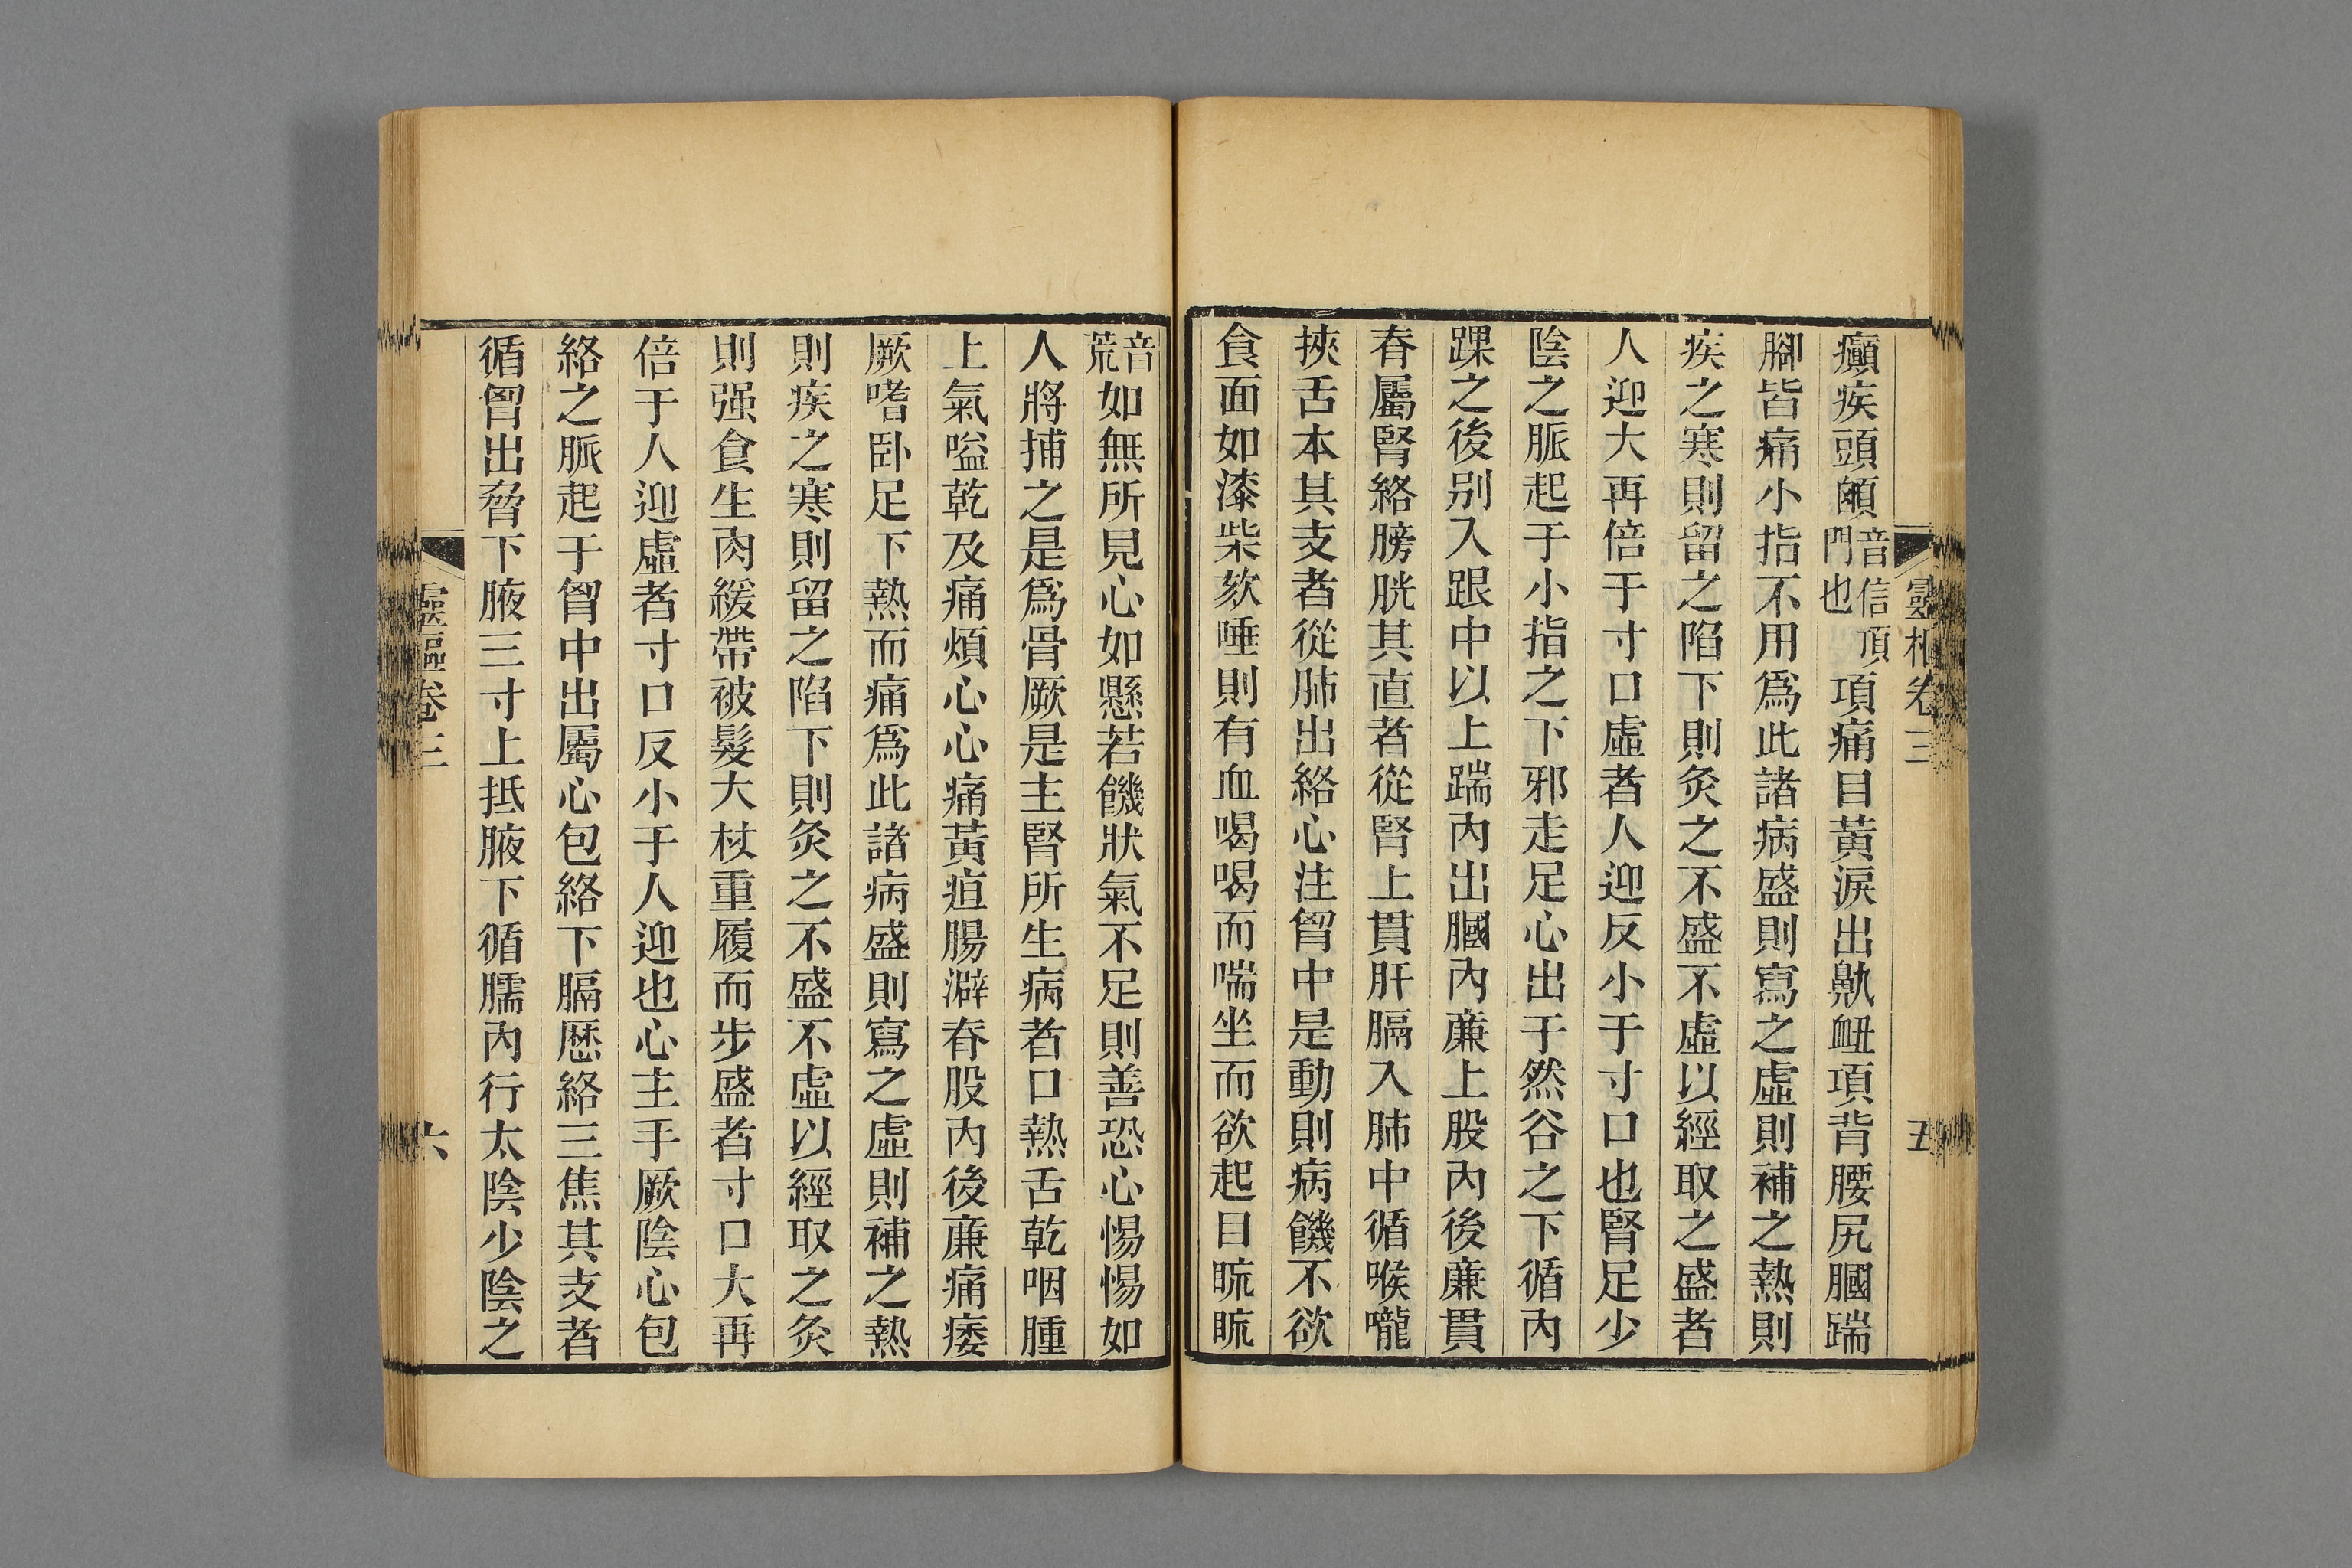 靈樞卷三 五
癲疾頭𩕄音信頂門也項痛目黃淚出鼽衂項背腰尻膕踹
腳皆痛小指不用爲此諸病盛則寫之虛則補之熱則
疾之寒則留之陷下則灸之不盛不虛以經取之盛者
人迎大再倍于寸口虛者人迎反小于寸口也腎足少
陰之脈起于小指之下邪走足心出于然谷之下循內
踝之後別入跟中以上踹內出膕內亷上股內後亷貫
脊屬腎絡膀胱其直者從腎上貫肝膈入肺中循喉嚨
挾舌本其支者從肺出絡心注胷中是動則病饑不欲
食面如漆柴欬唾則有血喝喝而喘坐而欲起目䀮䀮
音荒如無所見心如懸若饑狀氣不足則善恐心惕惕如
人將捕之是爲骨厥是主腎所生病者口熱舌乾咽腫
上氣嗌乾及痛煩心心痛黃疸腸澼脊股內後亷痛痿
厥嗜卧足下熱而痛爲此諸病盛則寫之虛則補之熱
則疾之寒則留之陷下則灸之不盛不虛以經取之灸
則强食生肉緩帶被髮大杖重履而步盛者寸口大再
倍于人迎虛者寸口反小于人迎也心主手厥陰心包
絡之脈起于胷中出屬心包絡下膈歷絡三焦其支者
循胷出脅下腋三寸上抵腋下循臑內行太陰少陰之
靈樞卷三 六